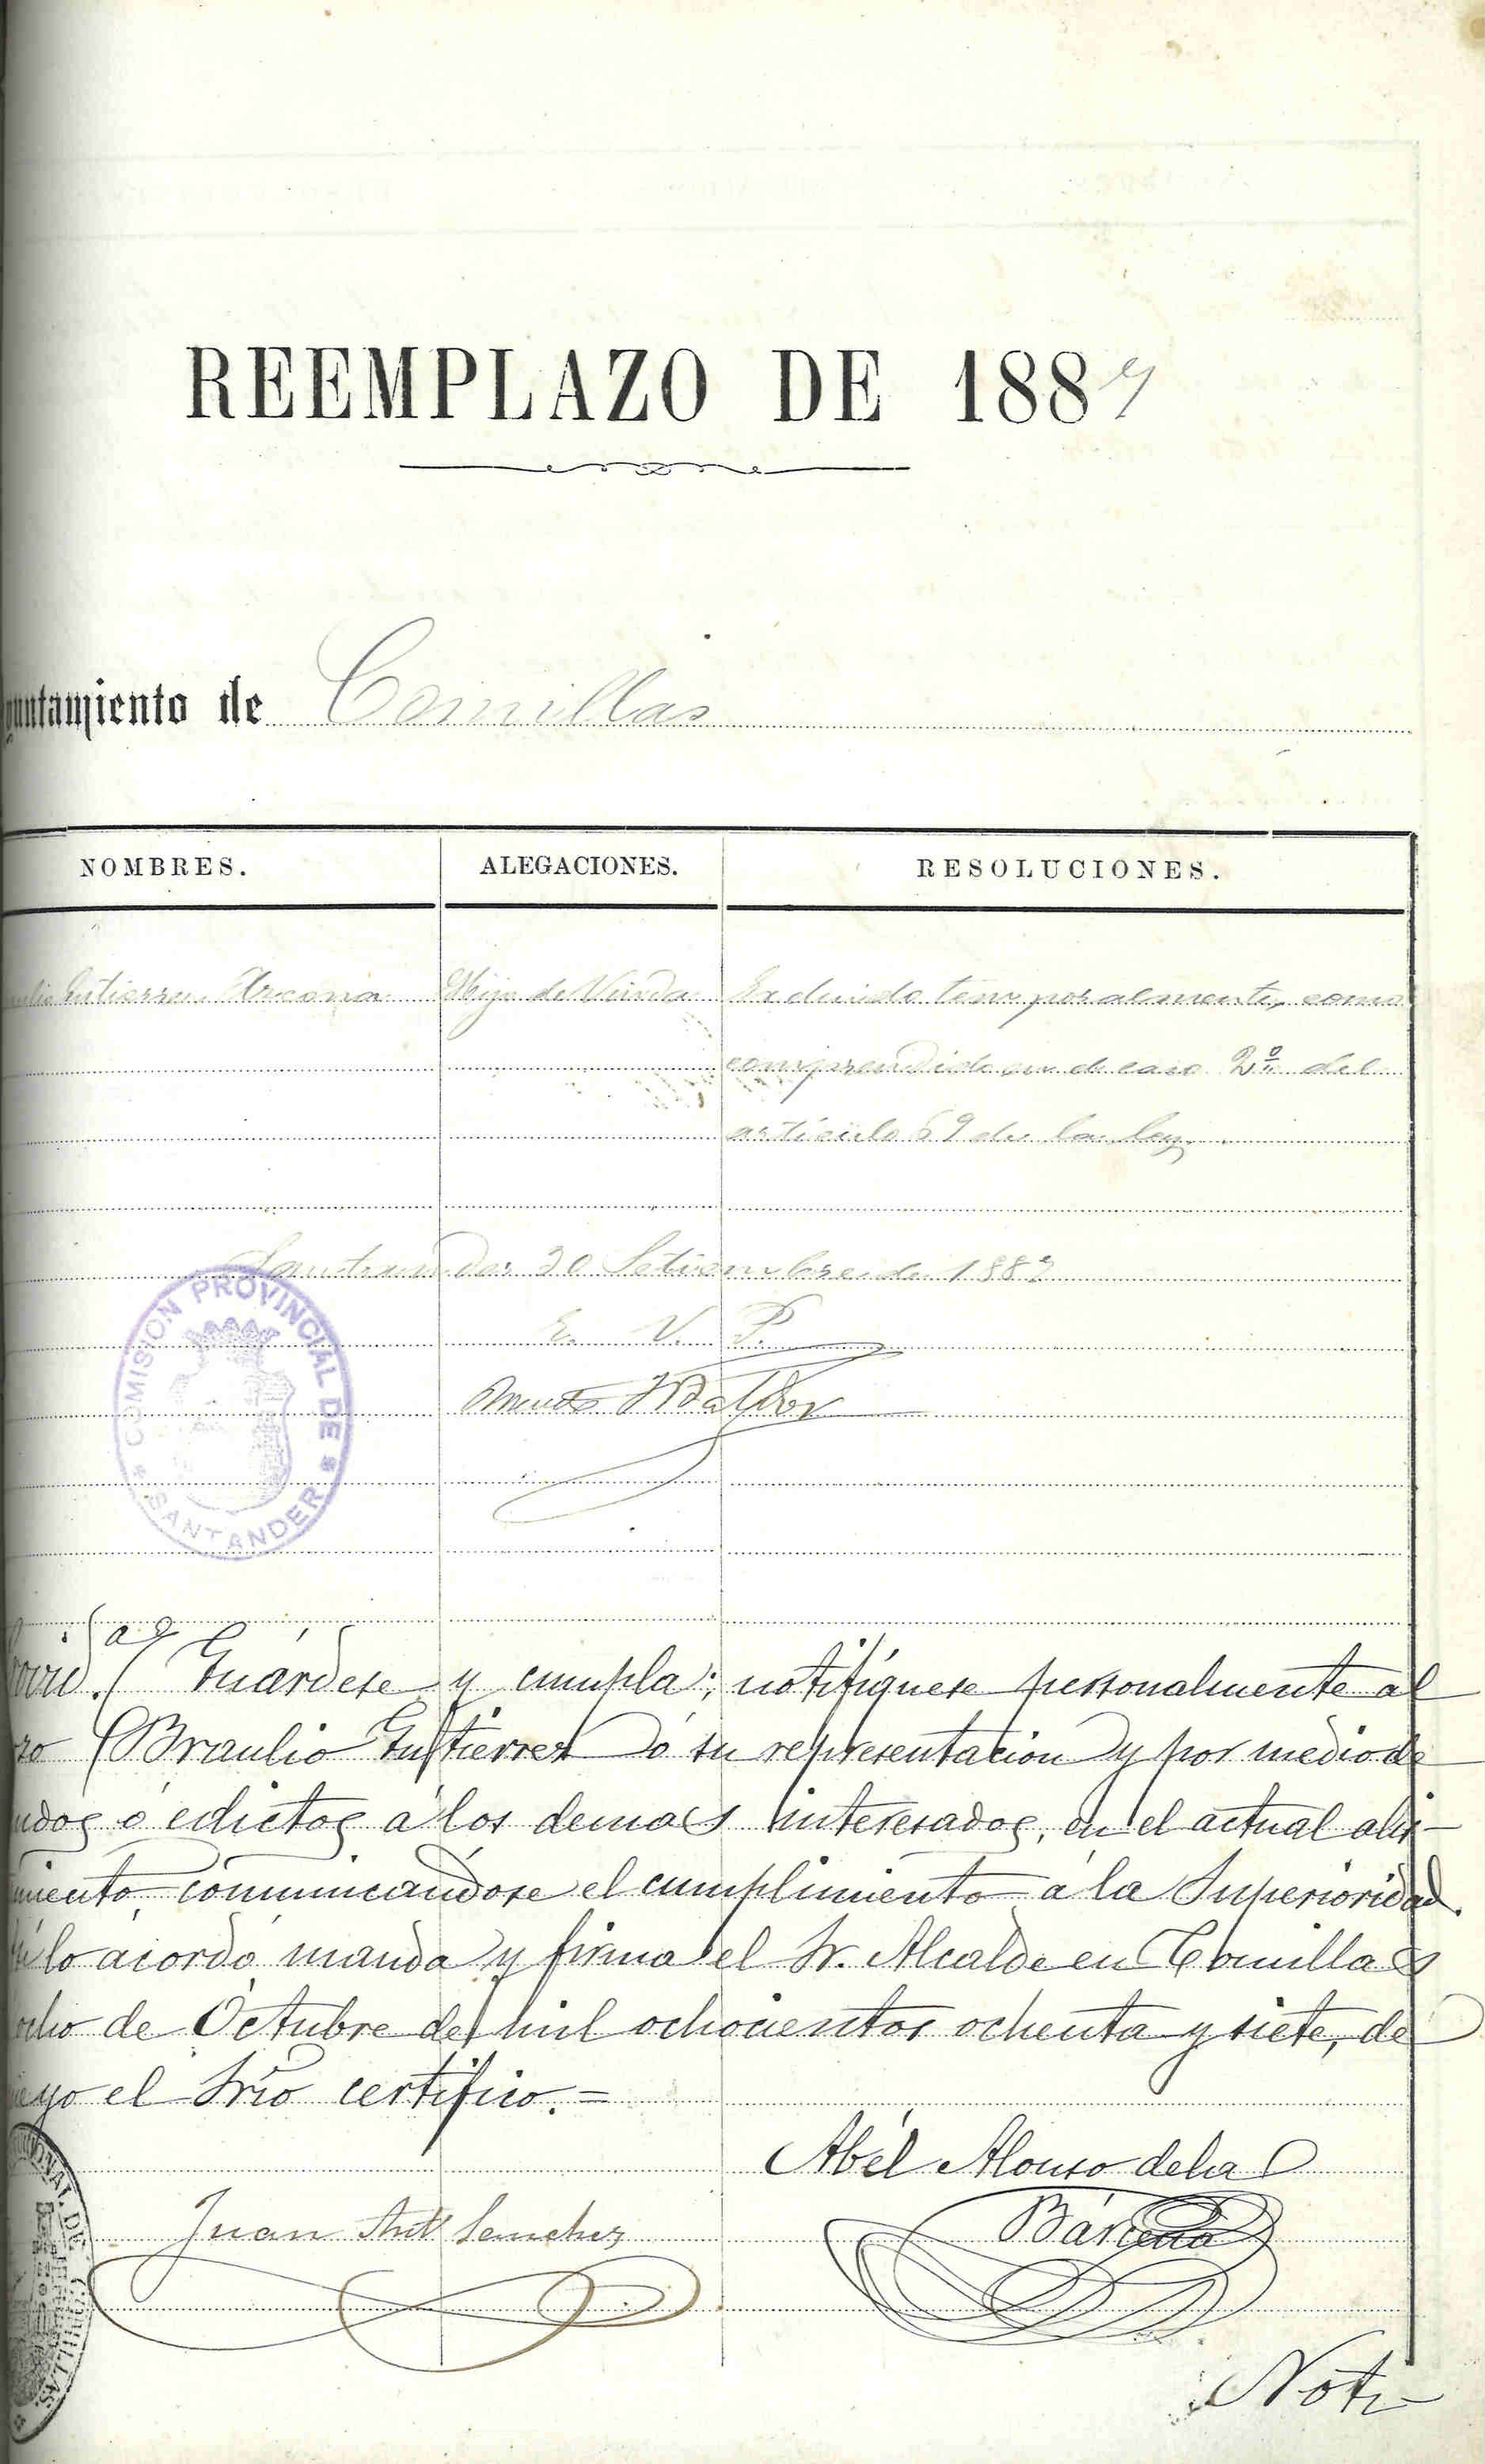 REEMPLAZO DE 1887
untamiento de Comillas
NOMBRES. ALEGACIONES. RESOLUCIONES.
ulio Gutierrez Hijo de Viuda Excluido temporalmente, como
comprendido en el caso 2º del
artículo 69 de la ley.
Santander 30 Setiembre de 1887
E. V. P.
COMISION PROVINCIAL DE SANTANDER
Guárdese y cumpla; notifíquese personalmente al
zo Braulio Gutierrez ó su representacion y por medio de
ndos ó edictos á los demas interesados, en el actual alis-
miento, comunicandose el cumplimiento á la Superioridad.
lo acordó manda y firma el Sr. Alcalde en Comillas
ocho de Octubre de mil ochocientos ochenta y siete, de
yo el Srio certifico.=
Abél Alonso de la
Juan Antº Sanchez Bárcena
Noti-